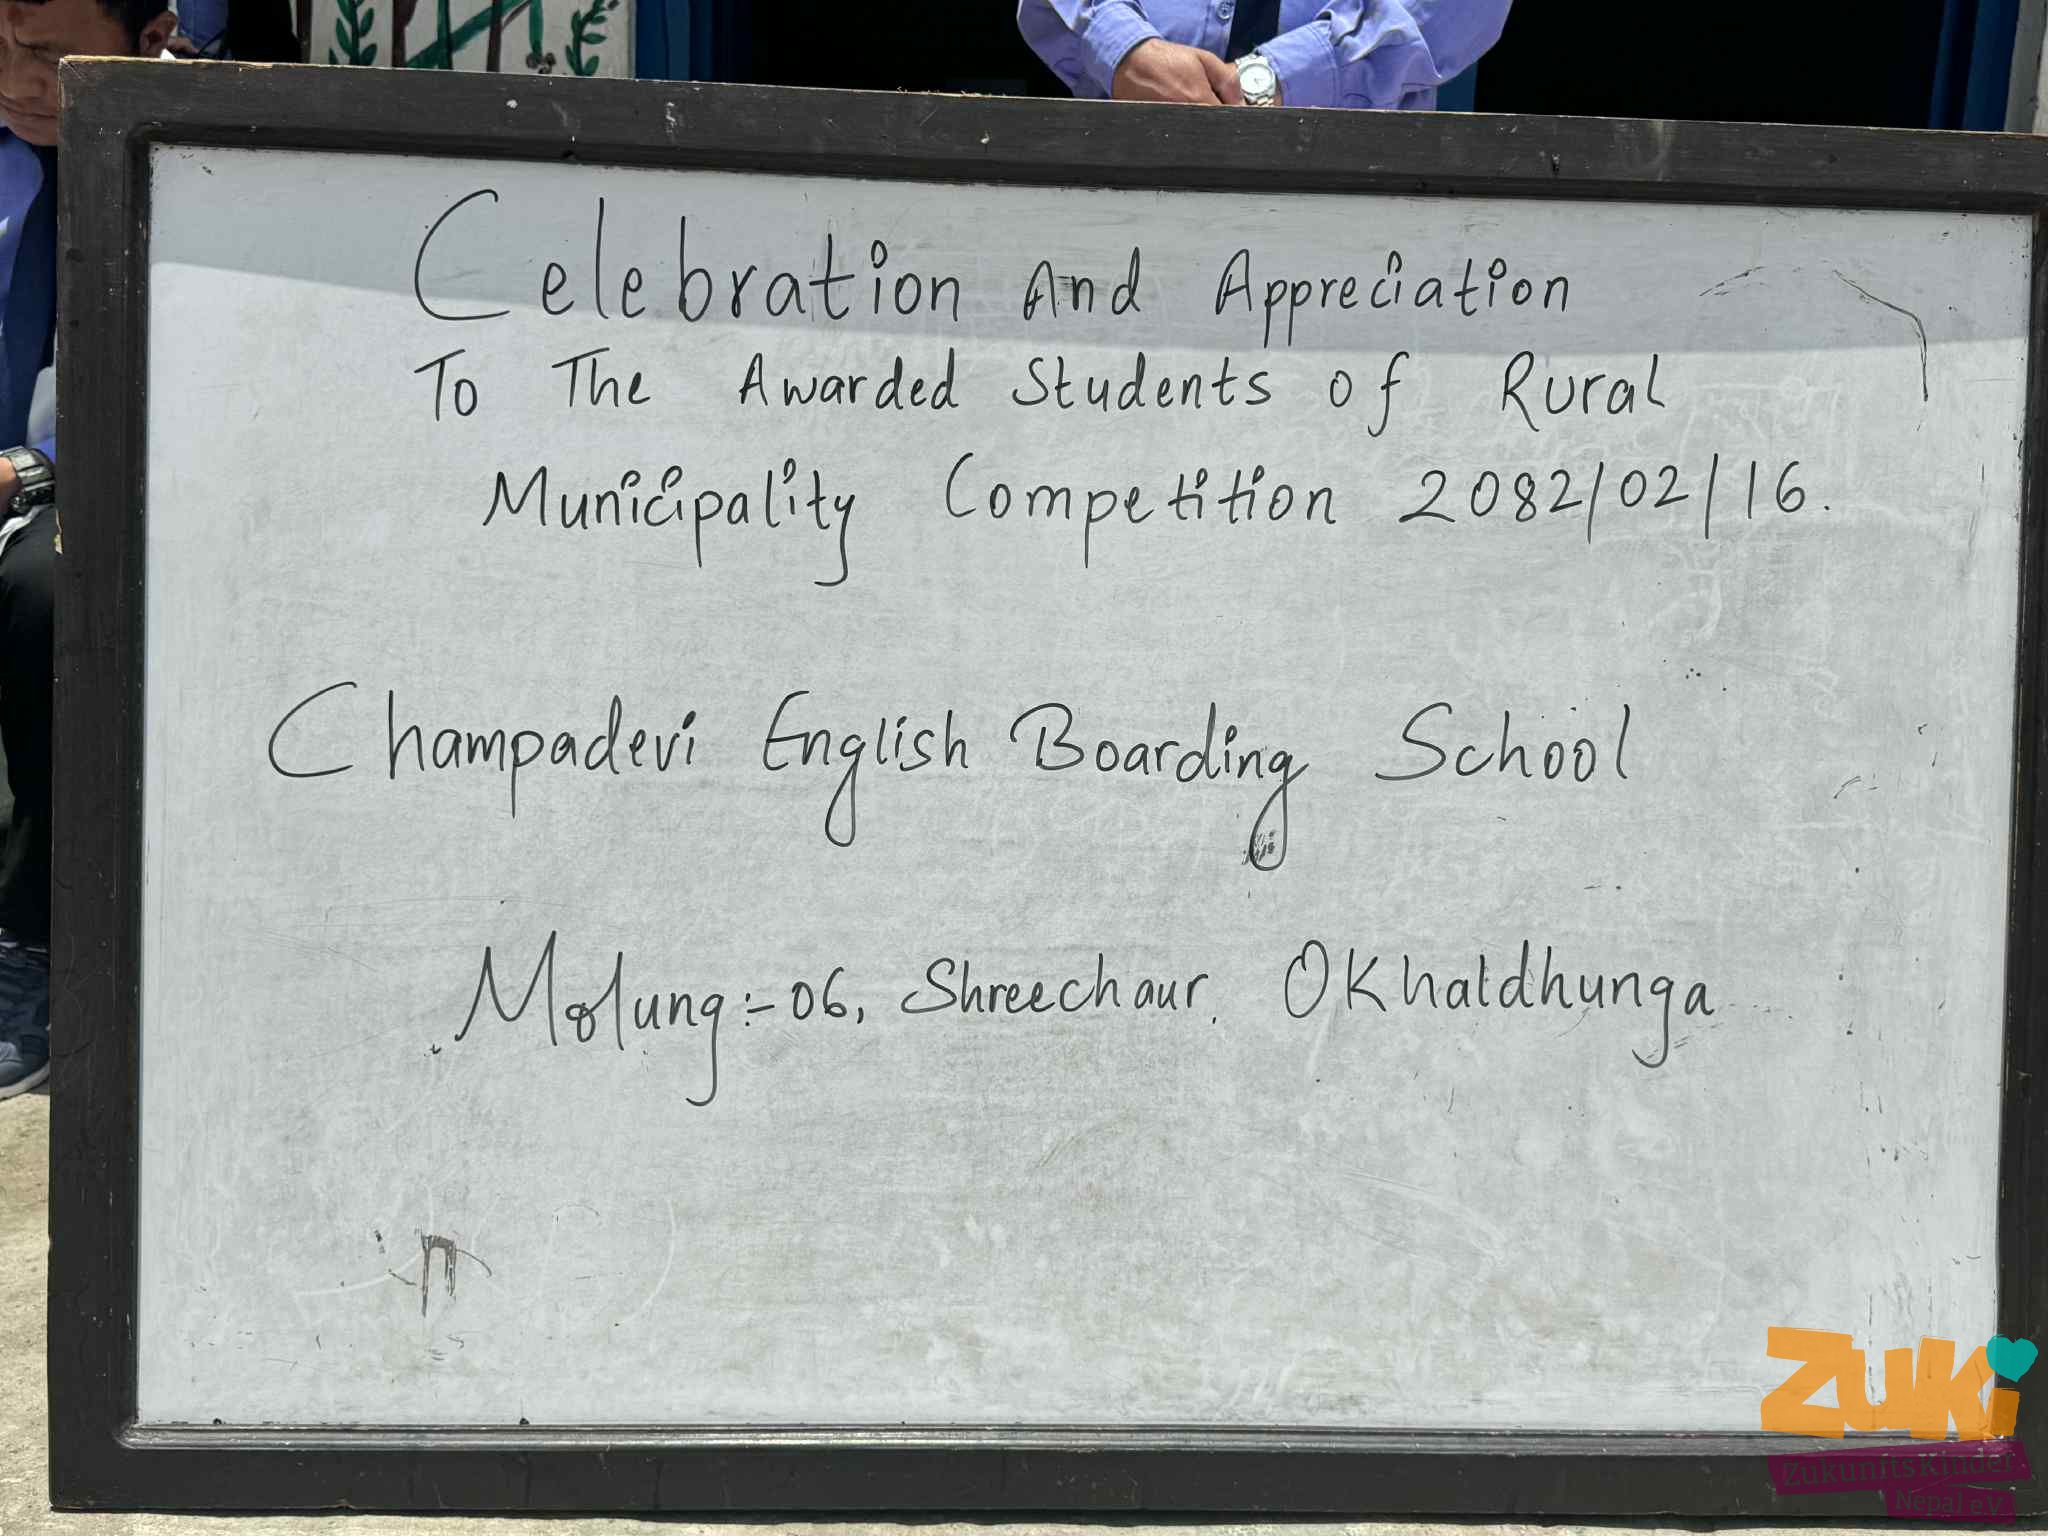 Celebration And Appreciation
To The Awarded Students of Rural
Municipality Competition 2082/02/16.
Champadevi English Boarding School
Molung:-06, Shreechaur, Okhaldhunga
ZUKi
ZukunftsKinder
Nepal e.V.